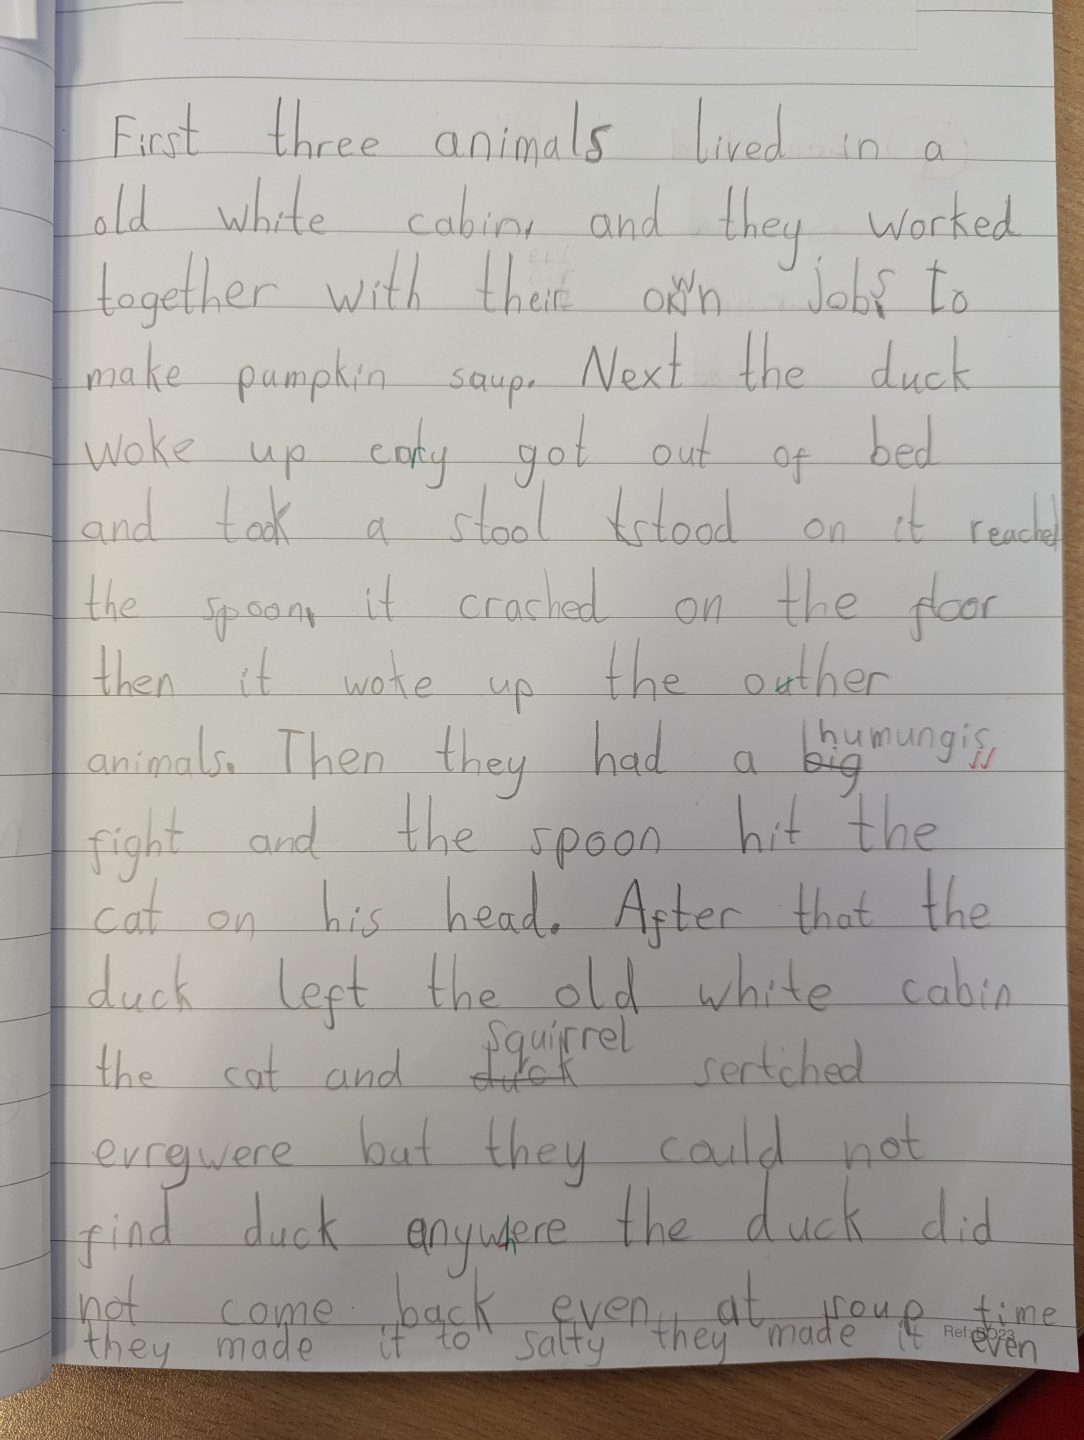 First three animals lived in a
old white cabin, and they worked
together with their own jobs to
make pumpkin saup. Next the duck
woke up eary got out of bed
and took a stool stood on it reached
the spoon, it crached on the floor
then it woke up the outher
animals. Then they had a humungis
big
fight and the spoon hit the
cat on his head. After that the
duck left the old white cabin
squirrel
the cat and duck sertched
evregwere but they could not
find duck anywhere the duck did
not come back even at soup time
they made it to salty they made it even
Ref: